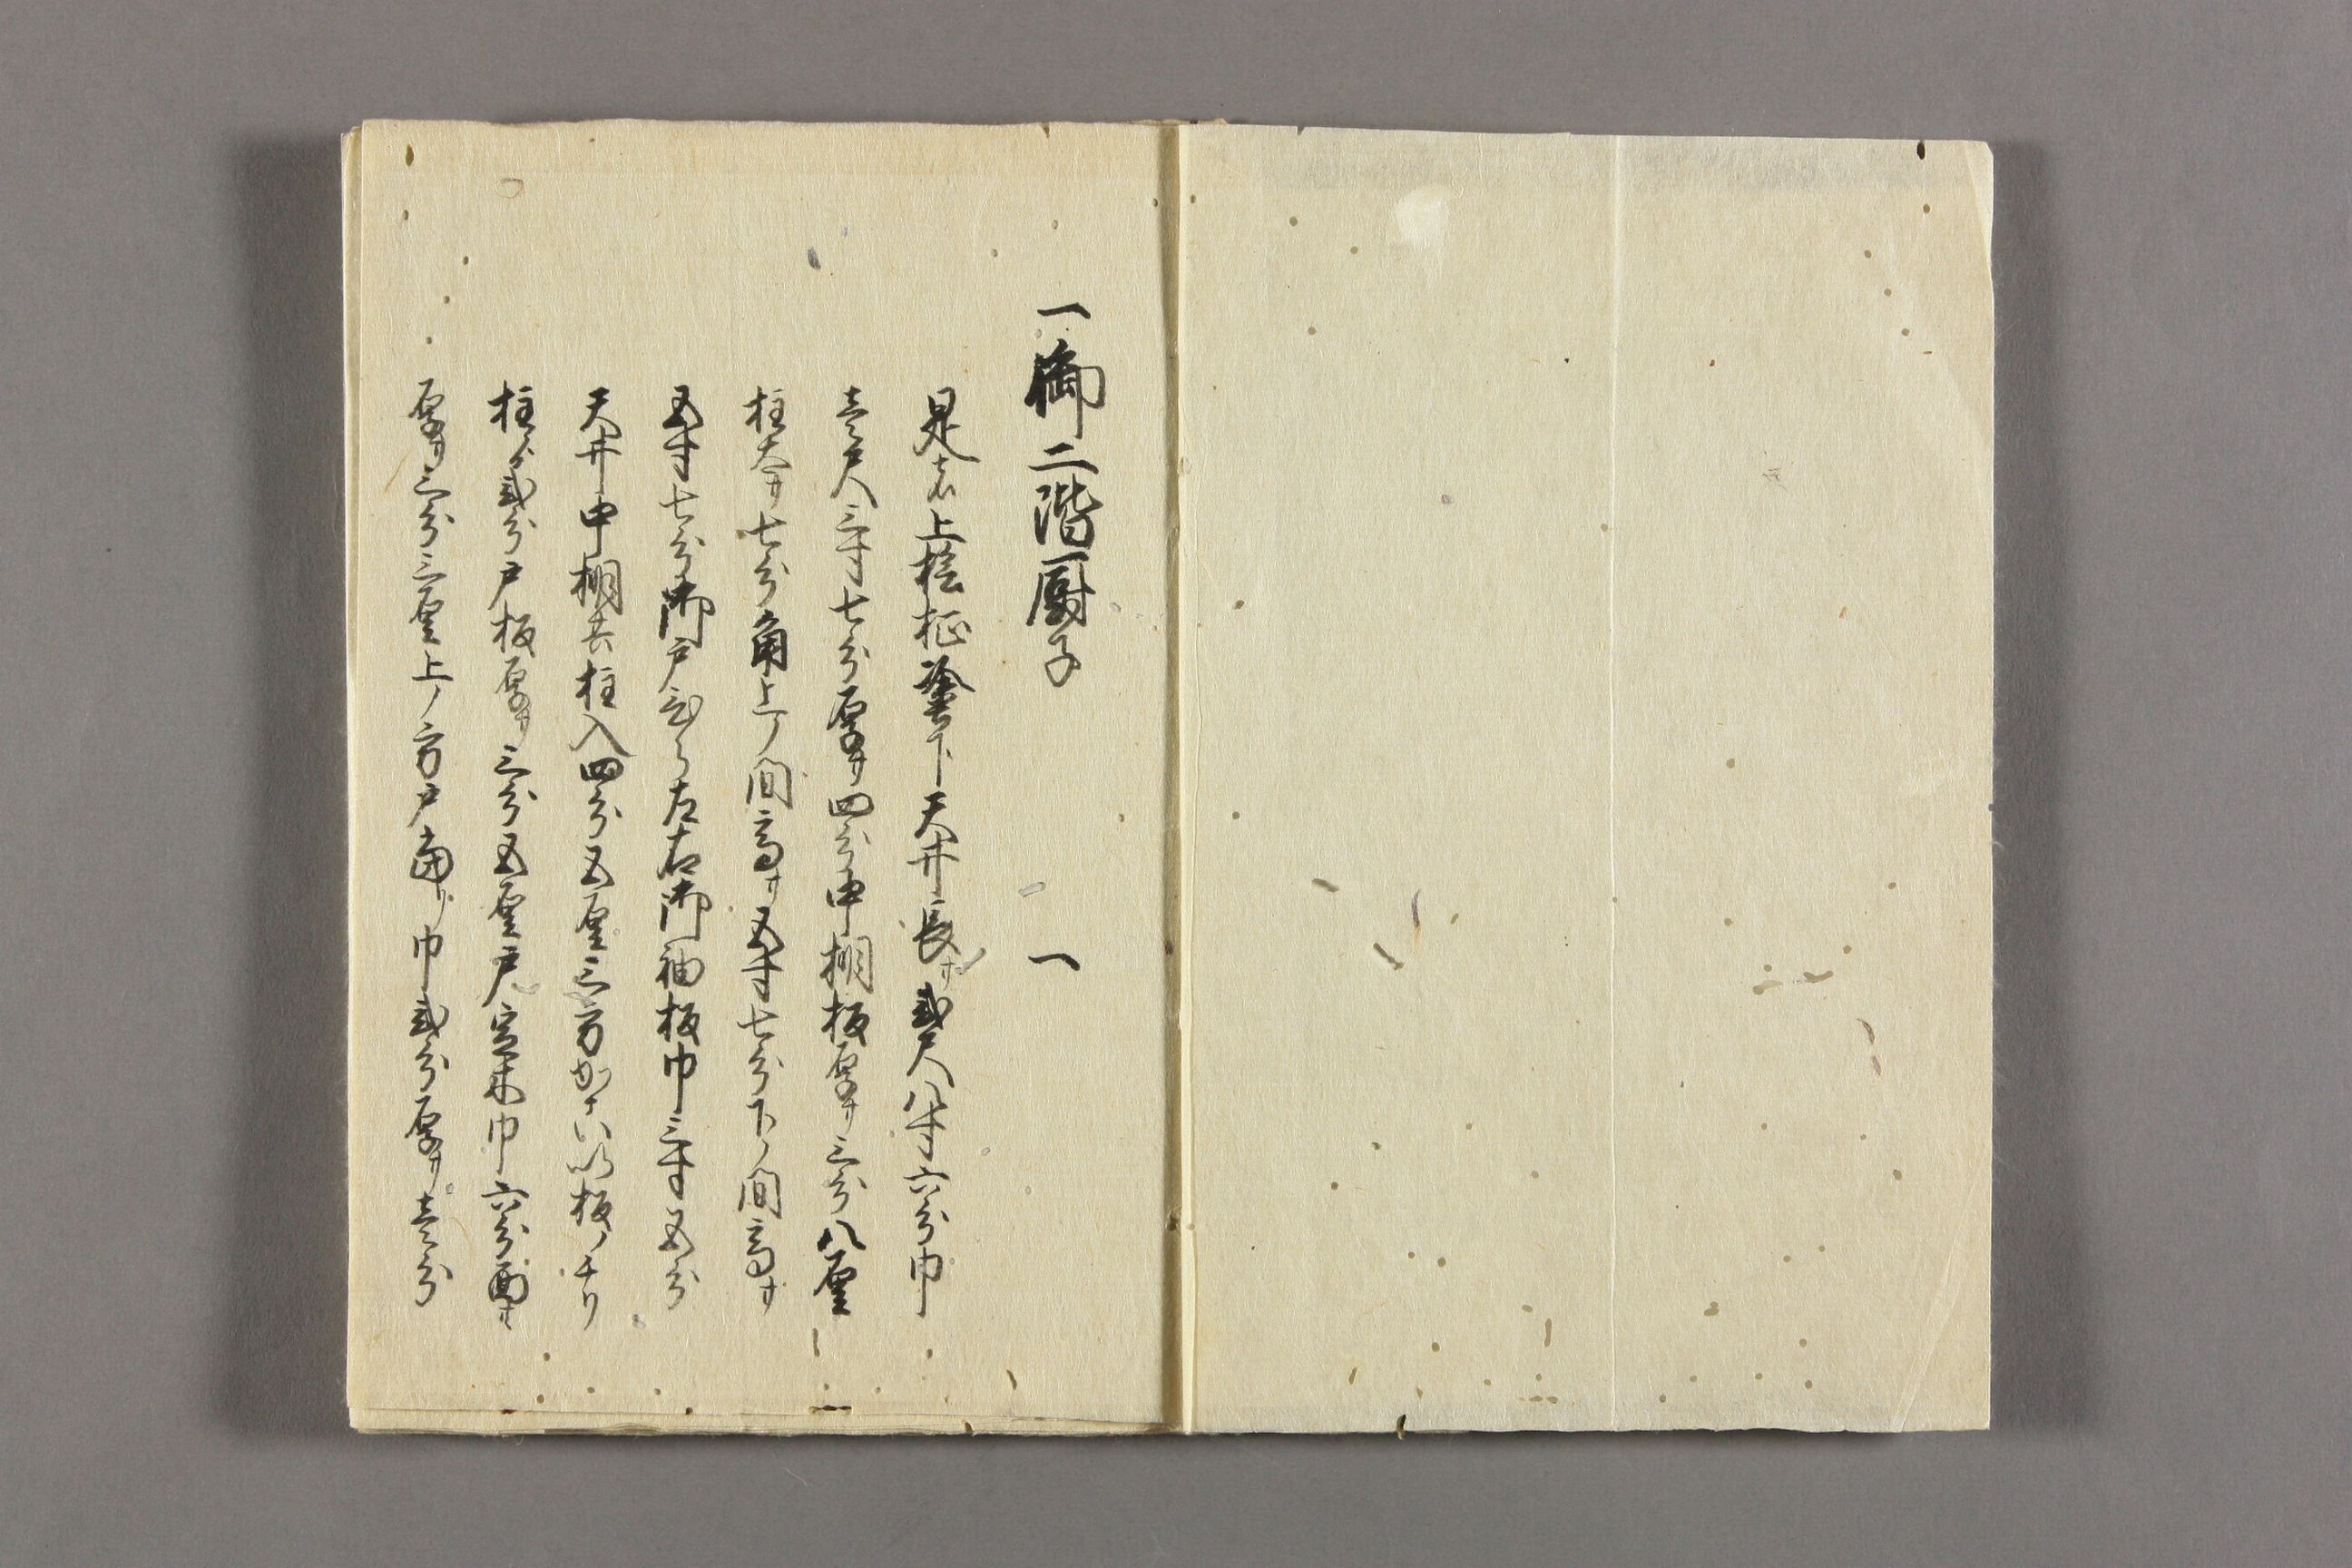 一御二階厨子　一
是者上桧柾塗下天井長サ弐尺八寸六分巾
壱尺三寸七分厚サ四分中棚板厚サ三分八厘
柱太サ七分角上ノ間高サ五寸七分下ノ間高サ
五寸七分御戸ひら左右御袖板巾三寸五分
天井中棚共柱入四分五厘三方かこい板ノチリ
柱ゟ弐分戸板厚サ三分五厘戸定木巾六分面サ
厚サ三分三厘上ノ方戸當リ巾弐分厚サ壱分